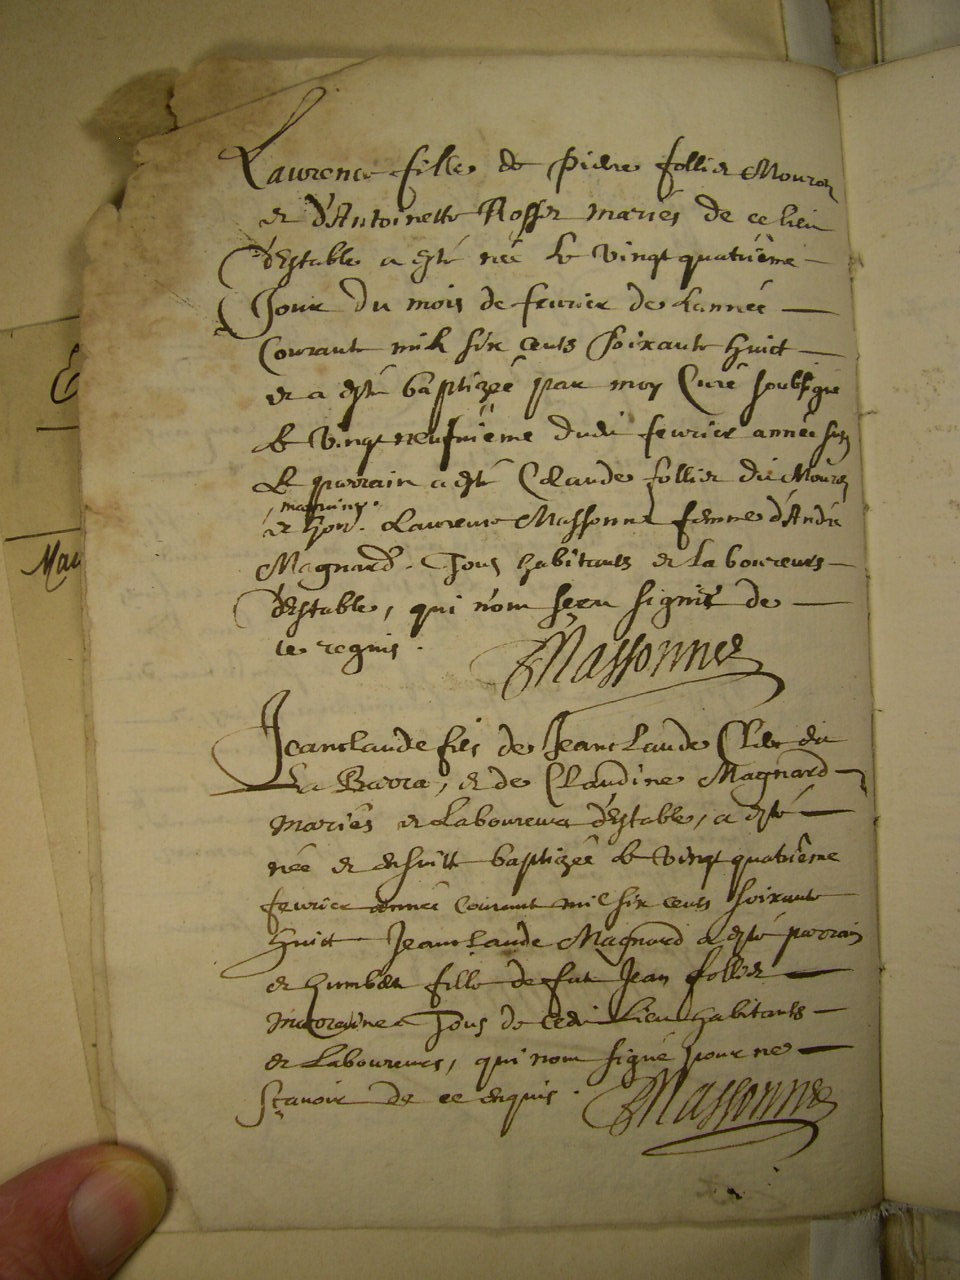 Laurence fille de Pierre follier Mouroz
et d'Antoinette Rosser mariés de ce lieu
d'Estable a esté née le vingt quatrième
Jour du mois de fevrier de l'année
Courante mil six cents soixante huict
et a esté baptizée par moy Curé soubsigné
le vingt neufuième dudi fevrier année sus
le parrain a esté Claude follier dit Mouroz
marrine
et hon. Laurence Massonne femme d'André
Magnard. Tous habitants et laboureurs
d'Estable, qui n'ont sceu signer de
ce requis.
Massonnet
Jeanclaude fils de Jeanclaude Clert du
La Barra, et de Claudine Magnard
mariés et laboureurs d'Estable, a esté
née et ensuitte baptizée le vingt quatrième
fevrier année courant mil six cents soixante
huict Jeanclaude Magnard a esté parrain
et humberte fille de fut Jean follier
marraine Tous de cedi lieu habitants
et laboureurs, qui nont signé pour ne
sçavoir de ce enquis.
Massonnet
Mau